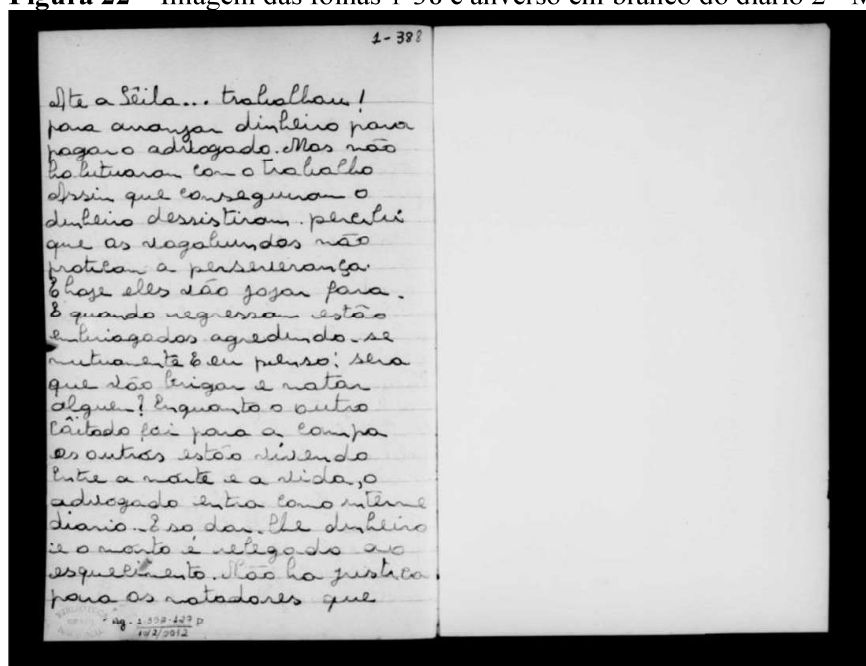 Figura 22 – Imagem das folhas 1-38 e anverso em branco do diário 2 – M
1-388
Ate a Lêila... trabalhou!
para arranjar dinheiro para
pagar o advogado. Mas não
habituaram com o trabalho
Assim que conseguiram o
dinheiro dessistiram. percebi
que as vagabundas não
praticam a perseverança.
E hoje eles vão jogar fara.
E quando regressam estão
embriagados agredindo-se
mutuamente E eu penso: sera
que vão brigar e matar
alguem? Enquanto o outro
côitado foi para a campa
os outros estão vivendo
Entre a morte e a vida, o
advogado entra como interme
diario. E so dar-lhe dinheiro
ie o morto é relegado ao
esquecimento. Não ha justiça
para os matadores que
BIBLIOTECA
Rg. 1.352.127 P
10/2/2012